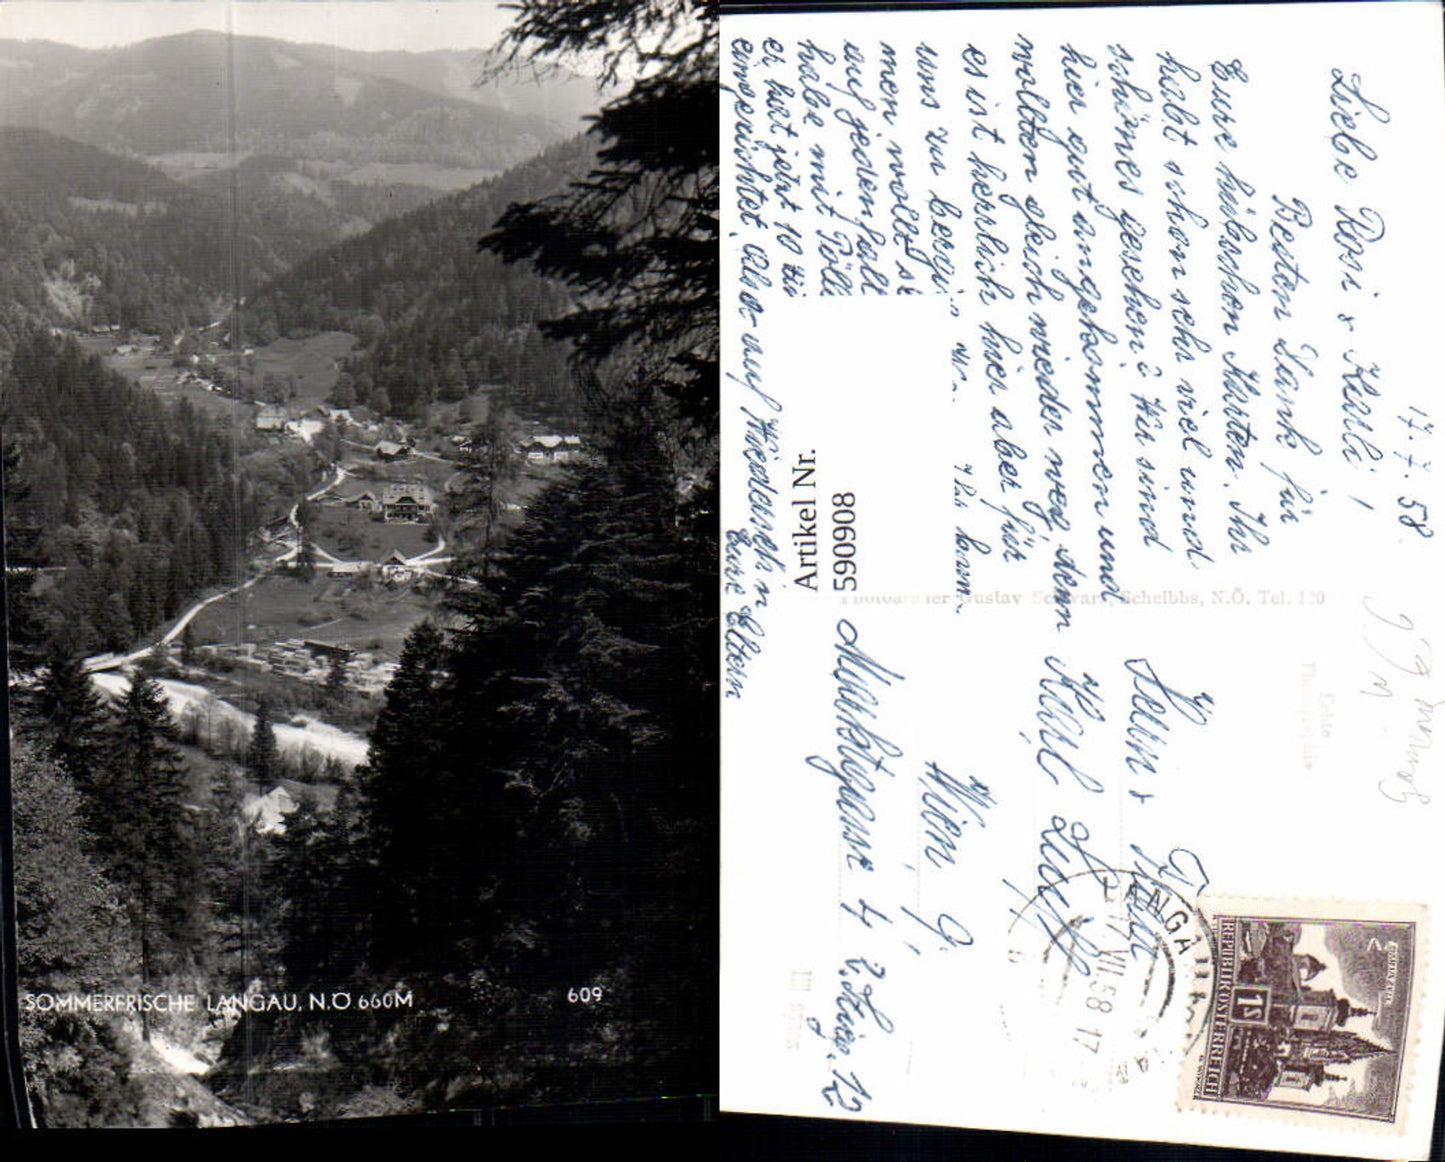 SOMMERFRISCHE LANGAU, N.Ö 660M
609
17.7.58.
Liebe Rosi & Karli!
Besten Dank für
Eure hübschen Karten. Ihr
habt schon sehr viel und
schönes gesehen? Wir sind
hier gut angekommen und
wollten gleich wieder weg, denn
es ist herrlich hier aber für
uns zu bergi
men wollt s
auf jeden Fall
habe mit Pölli
er hat jetzt 10
eingerichtet. Also auf Wiedersehn
Eure Eltern
Artikel Nr.
590908
Gustav Schwarz, Scheibbs, N.Ö. Tel. 120
Echte
Karl
Wien 9.
Marktgasse 4 2. Stieg. 12
LANGAU
17.VII.58-17
REPUBLIK ÖSTERREICH
1S
MARIAZELL